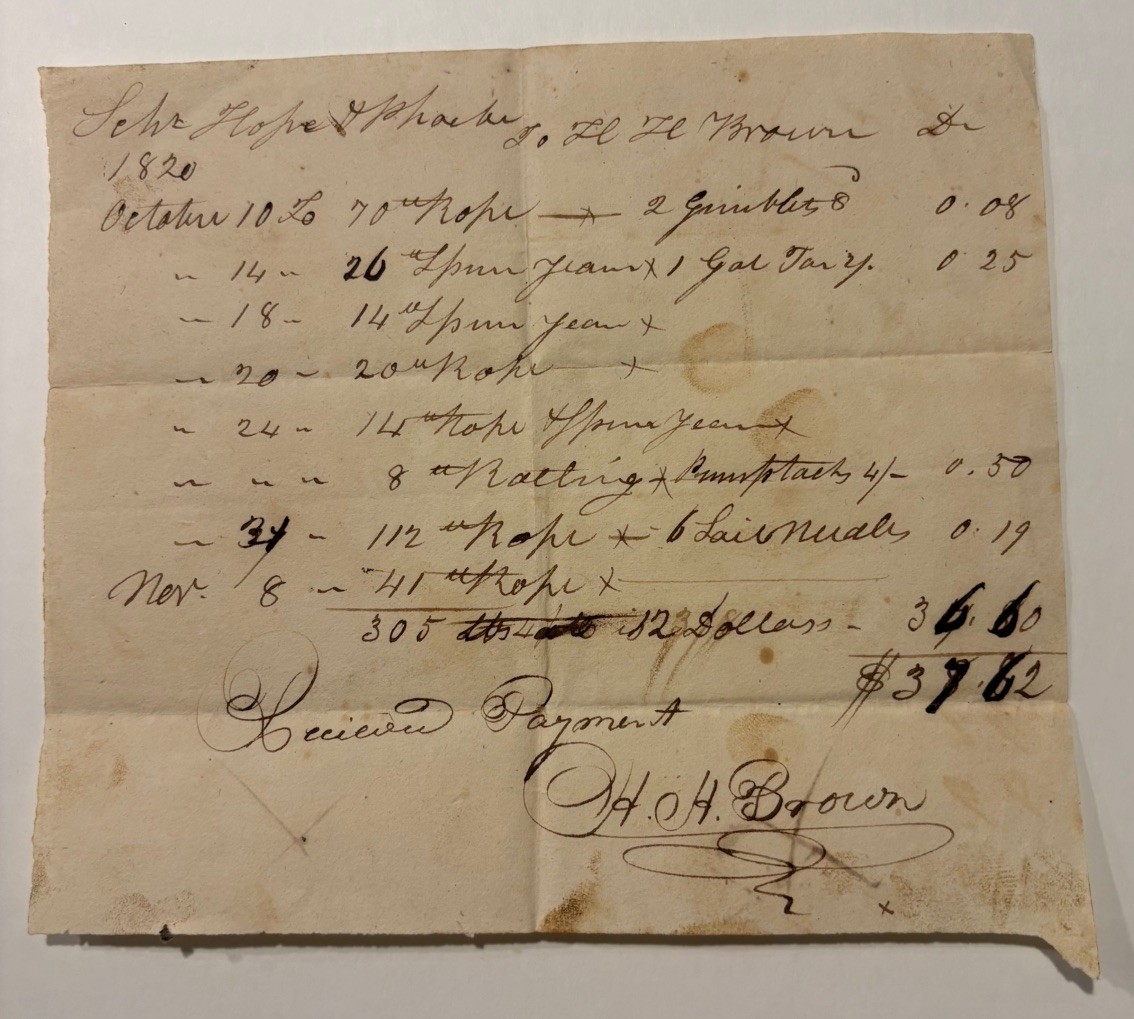 Schr Hope & Phoebe To H H Brown Dr
1820
October 10 To 70 lb Rope — x 2 Gimblets 8 0.08
" 14 " 26 lb Spun Yearn x 1 Gal Tar 2/. 0 25
" 18 " 14 lb Spun Yearn x
" 20 " 20 lb Rope x
" 24 " 14 lb Rope & Spun Yearn x
" " " 8 lb Ratling x Pumptacks 4/- 0.50
" 31 " 112 lb Rope x 6 Sail Needles 0.19
Nov. 8 " 41 lb Rope x
305 lbs is 12 Dollars - 36.60
$37.62
Received Payment
H. H. Brown
x